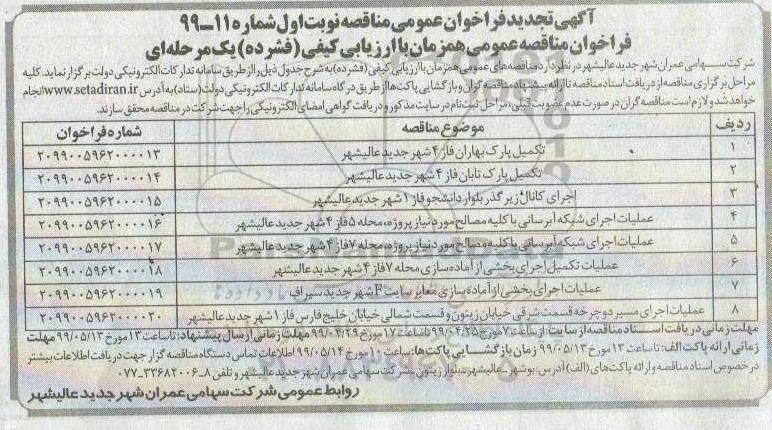 آگهی تجدید فراخوان عمومی مناقصه نوبت اول شماره ۱۱-۹۹
فراخوان مناقصه عمومی همزمان با ارزیابی کیفی (فشرده) یک مرحله‌ای
شرکت سهامی عمران شهر جدید عالیشهر در نظر دارد مناقصه های عمومی همزمان با ارزیابی کیفی (فشرده) به شرح جدول ذیل را از طریق سامانه تدارکات الکترونیکی دولت برگزار نماید. کلیه
مراحل برگزاری مناقصه از دریافت اسناد مناقصه تا ارائه پیشنهاد مناقصه گران و بازگشایی پاکت‌ها از طریق درگاه سامانه تدارکات الکترونیکی دولت (ستاد) به آدرس www.setadiran.ir انجام
خواهد شد و لازم است مناقصه گران در صورت عدم عضویت قبلی، مراحل ثبت نام در سایت مذکور و دریافت گواهی امضای الکترونیکی را جهت شرکت در مناقصه محقق سازند.
ردیف موضوع مناقصه شماره فراخوان
۱ تکمیل پارک بهاران فاز ۴ شهر جدید عالیشهر ۲۰۹۹۰۰۵۹۶۲۰۰۰۰۱۳
۲ تکمیل پارک تابان فاز ۴ شهر جدید عالیشهر ۲۰۹۹۰۰۵۹۶۲۰۰۰۰۱۴
۳ اجرای کانال زیرگذر بلوار دانشجو فاز ۱ شهر جدید عالیشهر ۲۰۹۹۰۰۵۹۶۲۰۰۰۰۱۵
۴ عملیات اجرای شبکه آبرسانی با کلیه مصالح مورد نیاز پروژه، محله ۵ فاز ۴ شهر جدید عالیشهر ۲۰۹۹۰۰۵۹۶۲۰۰۰۰۱۶
۵ عملیات اجرای شبکه آبرسانی با کلیه مصالح مورد نیاز پروژه، محله ۷ فاز ۴ شهر جدید عالیشهر ۲۰۹۹۰۰۵۹۶۲۰۰۰۰۱۷
۶ عملیات تکمیل اجرای بخشی از آماده سازی محله ۷ فاز ۴ شهر جدید عالیشهر ۲۰۹۹۰۰۵۹۶۲۰۰۰۰۱۸
۷ عملیات اجرای بخشی از آماده سازی معابر سایت F شهر جدید سیراف ۲۰۹۹۰۰۵۹۶۲۰۰۰۰۱۹
۸ عملیات اجرای مسیر دوچرخه قسمت شرقی خیابان زیتون و قسمت شمالی خیابان خلیج فارس فاز ۱ شهر جدید عالیشهر ۲۰۹۹۰۰۵۹۶۲۰۰۰۰۲۰
مهلت زمانی دریافت اسناد مناقصه از سایت: از ساعت ۷ مورخ ۹۹/۰۴/۲۵ تا ساعت ۷ مورخ ۹۹/۰۴/۲۹ مهلت زمانی ارسال پیشنهاد: تا ساعت ۱۳ مورخ ۹۹/۰۵/۱۳ مهلت
زمانی ارائه پاکت الف: تا ساعت ۱۳ مورخ ۹۹/۰۵/۱۳ زمان بازگشایی پاکت‌ها: ساعت ۱۰ مورخ ۹۹/۰۵/۱۴ اطلاعات تماس دستگاه مناقصه گزار جهت دریافت اطلاعات بیشتر
در خصوص اسناد مناقصه و ارائه پاکت‌های (الف) آدرس: بوشهر - عالیشهر - بلوار زیتون - شرکت سهامی عمران شهر جدید عالیشهر و تلفن ۸-۳۳۶۸۲۰۰۶-۰۷۷
روابط عمومی شرکت سهامی عمران شهر جدید عالیشهر